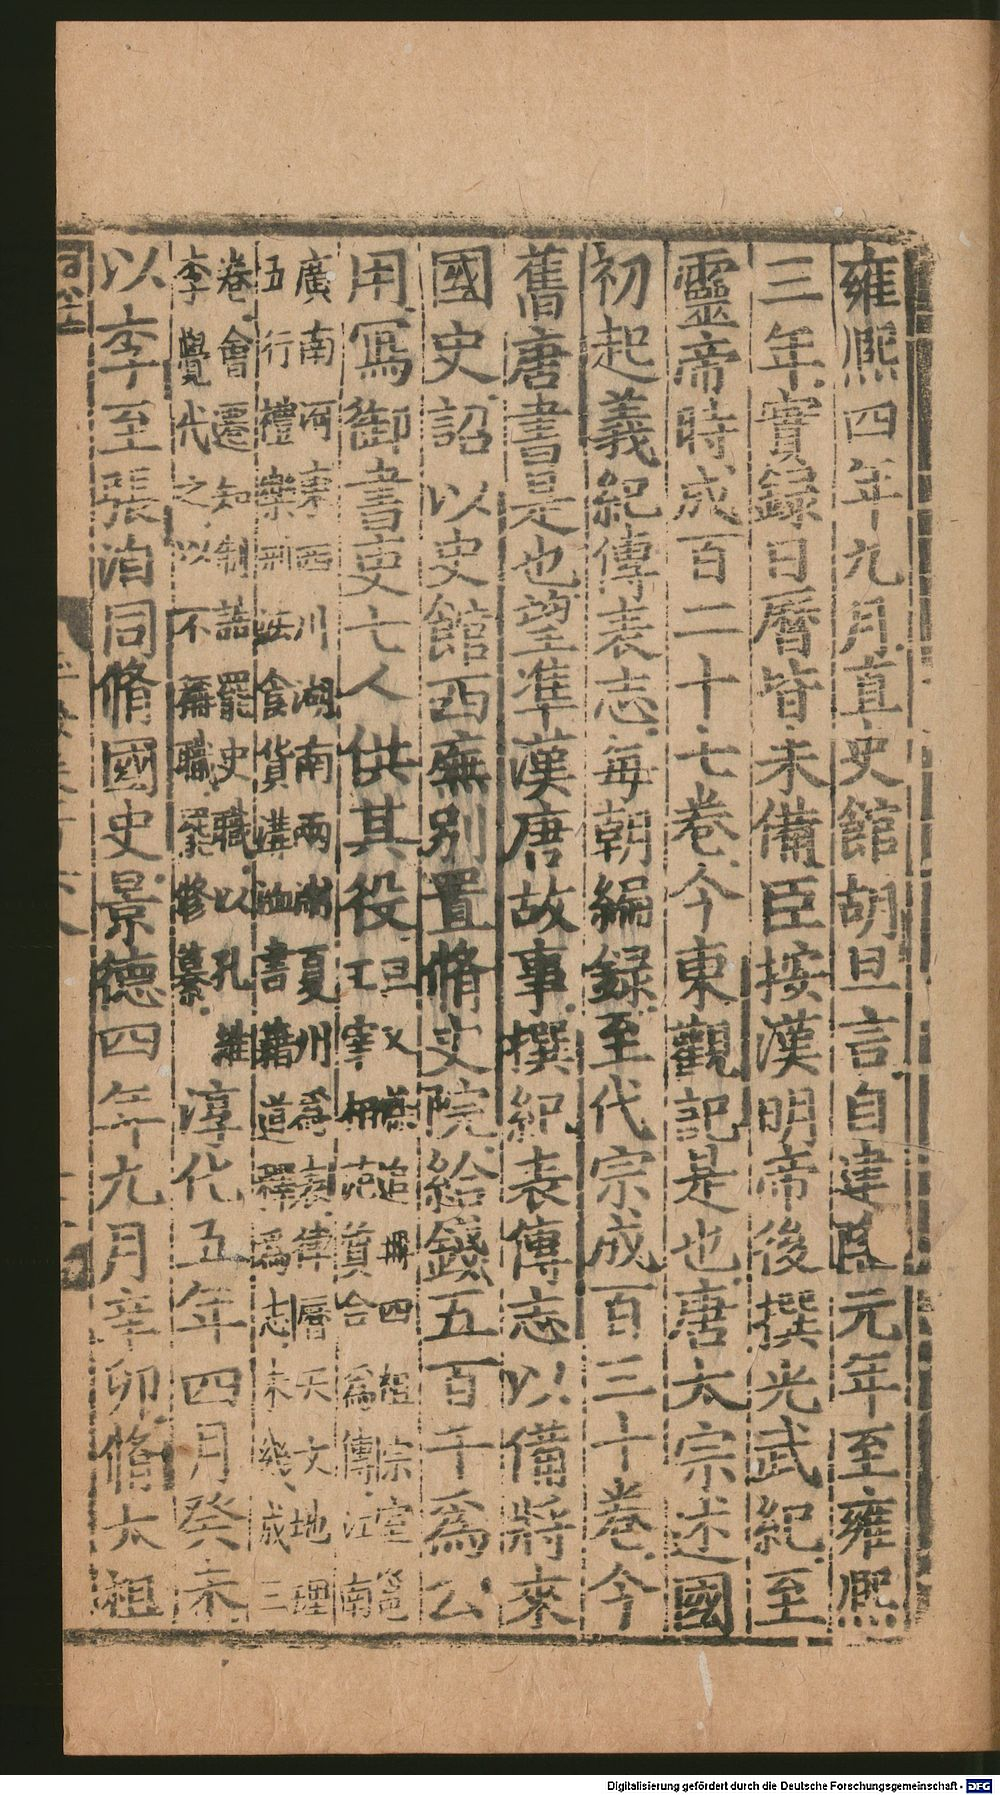 雍熈四年九月直史館胡旦言自建隆元年至雍熈
三年實録日曆皆未備臣按漢明帝後撰光武紀至
靈帝時成百二十七卷今東觀記是也唐太宗述國
初起義紀傳表志每朝編録至代宗成百三十卷今
舊唐書是也望準漢唐故事撰紀表傳志以備將來
國史詔以史館西廡別置脩史院給錢五百千爲公
用寫御書吏七人供其役旦又追撰四祖宗室
王宰相范質合爲傳江南
廣南河東西川湖南兩浙夏州爲表律曆天文地理
五行禮樂刑法食貨溝洫書籍道釋爲志未幾成三
卷會遷知制誥罷史職以孔維
李覺代之以不舊職罷修纂
淳化五年四月癸未
以李至張洎同脩國史景德四年九月辛卯脩太祖
Digitalisierung gefördert durch die Deutsche Forschungsgemeinschaft - DFG